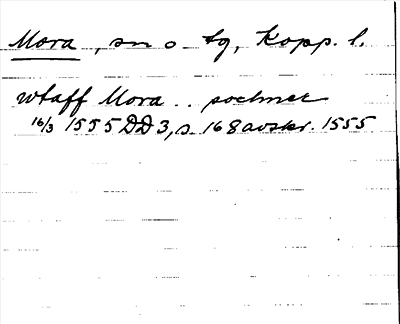 Mora, sn o tg, Kopp. l.
wtaff Mora .. sochnet
16/3 1555 DD 3, s. 168 avskr. 1555